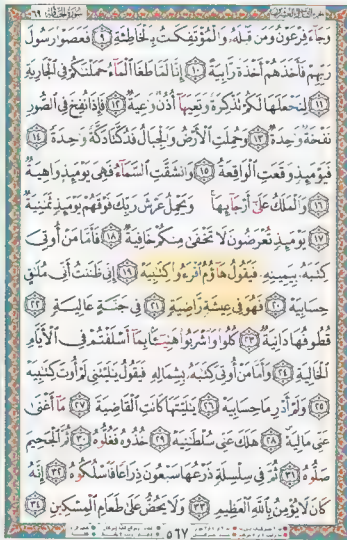 وَجَآءَ فِرْعَوْنُ وَمَن قَبْلَهُۥ وَٱلْمُؤْتَفِكَـٰتُ بِٱلْخَاطِئَةِ ٩ فَعَصَوْا۟ رَسُولَ
رَبِّهِمْ فَأَخَذَهُمْ أَخْذَةً رَّابِيَةً ١٠ إِنَّا لَمَّا طَغَا ٱلْمَآءُ حَمَلْنَـٰكُمْ فِى ٱلْجَارِيَةِ
١١ لِنَجْعَلَهَا لَكُمْ تَذْكِرَةً وَتَعِيَهَآ أُذُنٌ وَٰعِيَةٌ ١٢ فَإِذَا نُفِخَ فِى ٱلصُّورِ
نَفْخَةٌ وَٰحِدَةٌ ١٣ وَحُمِلَتِ ٱلْأَرْضُ وَٱلْجِبَالُ فَدُكَّتَا دَكَّةً وَٰحِدَةً ١٤
فَيَوْمَئِذٍ وَقَعَتِ ٱلْوَاقِعَةُ ١٥ وَٱنشَقَّتِ ٱلسَّمَآءُ فَهِىَ يَوْمَئِذٍ وَاهِيَةٌ
١٦ وَٱلْمَلَكُ عَلَىٰٓ أَرْجَآئِهَا وَيَحْمِلُ عَرْشَ رَبِّكَ فَوْقَهُمْ يَوْمَئِذٍ ثَمَـٰنِيَةٌ
١٧ يَوْمَئِذٍ تُعْرَضُونَ لَا تَخْفَىٰ مِنكُمْ خَافِيَةٌ ١٨ فَأَمَّا مَنْ أُوتِىَ
كِتَـٰبَهُۥ بِيَمِينِهِۦ فَيَقُولُ هَآؤُمُ ٱقْرَءُوا۟ كِتَـٰبِيَهْ ١٩ إِنِّى ظَنَنتُ أَنِّى مُلَـٰقٍ
حِسَابِيَهْ ٢٠ فَهُوَ فِى عِيشَةٍ رَّاضِيَةٍ ٢١ فِى جَنَّةٍ عَالِيَةٍ ٢٢
قُطُوفُهَا دَانِيَةٌ ٢٣ كُلُوا۟ وَٱشْرَبُوا۟ هَنِيٓـًٔۢا بِمَآ أَسْلَفْتُمْ فِى ٱلْأَيَّامِ
ٱلْخَالِيَةِ ٢٤ وَأَمَّا مَنْ أُوتِىَ كِتَـٰبَهُۥ بِشِمَالِهِۦ فَيَقُولُ يَـٰلَيْتَنِى لَمْ أُوتَ كِتَـٰبِيَهْ
٢٥ وَلَمْ أَدْرِ مَا حِسَابِيَهْ ٢٦ يَـٰلَيْتَهَا كَانَتِ ٱلْقَاضِيَةَ ٢٧ مَآ أَغْنَىٰ
عَنِّى مَالِيَهْ ٢٨ هَلَكَ عَنِّى سُلْطَـٰنِيَهْ ٢٩ خُذُوهُ فَغُلُّوهُ ٣٠ ثُمَّ ٱلْجَحِيمَ
صَلُّوهُ ٣١ ثُمَّ فِى سِلْسِلَةٍ ذَرْعُهَا سَبْعُونَ ذِرَاعًا فَٱسْلُكُوهُ ٣٢ إِنَّهُۥ
كَانَ لَا يُؤْمِنُ بِٱللَّهِ ٱلْعَظِيمِ ٣٣ وَلَا يَحُضُّ عَلَىٰ طَعَامِ ٱلْمِسْكِينِ ٣٤
٥٦٧